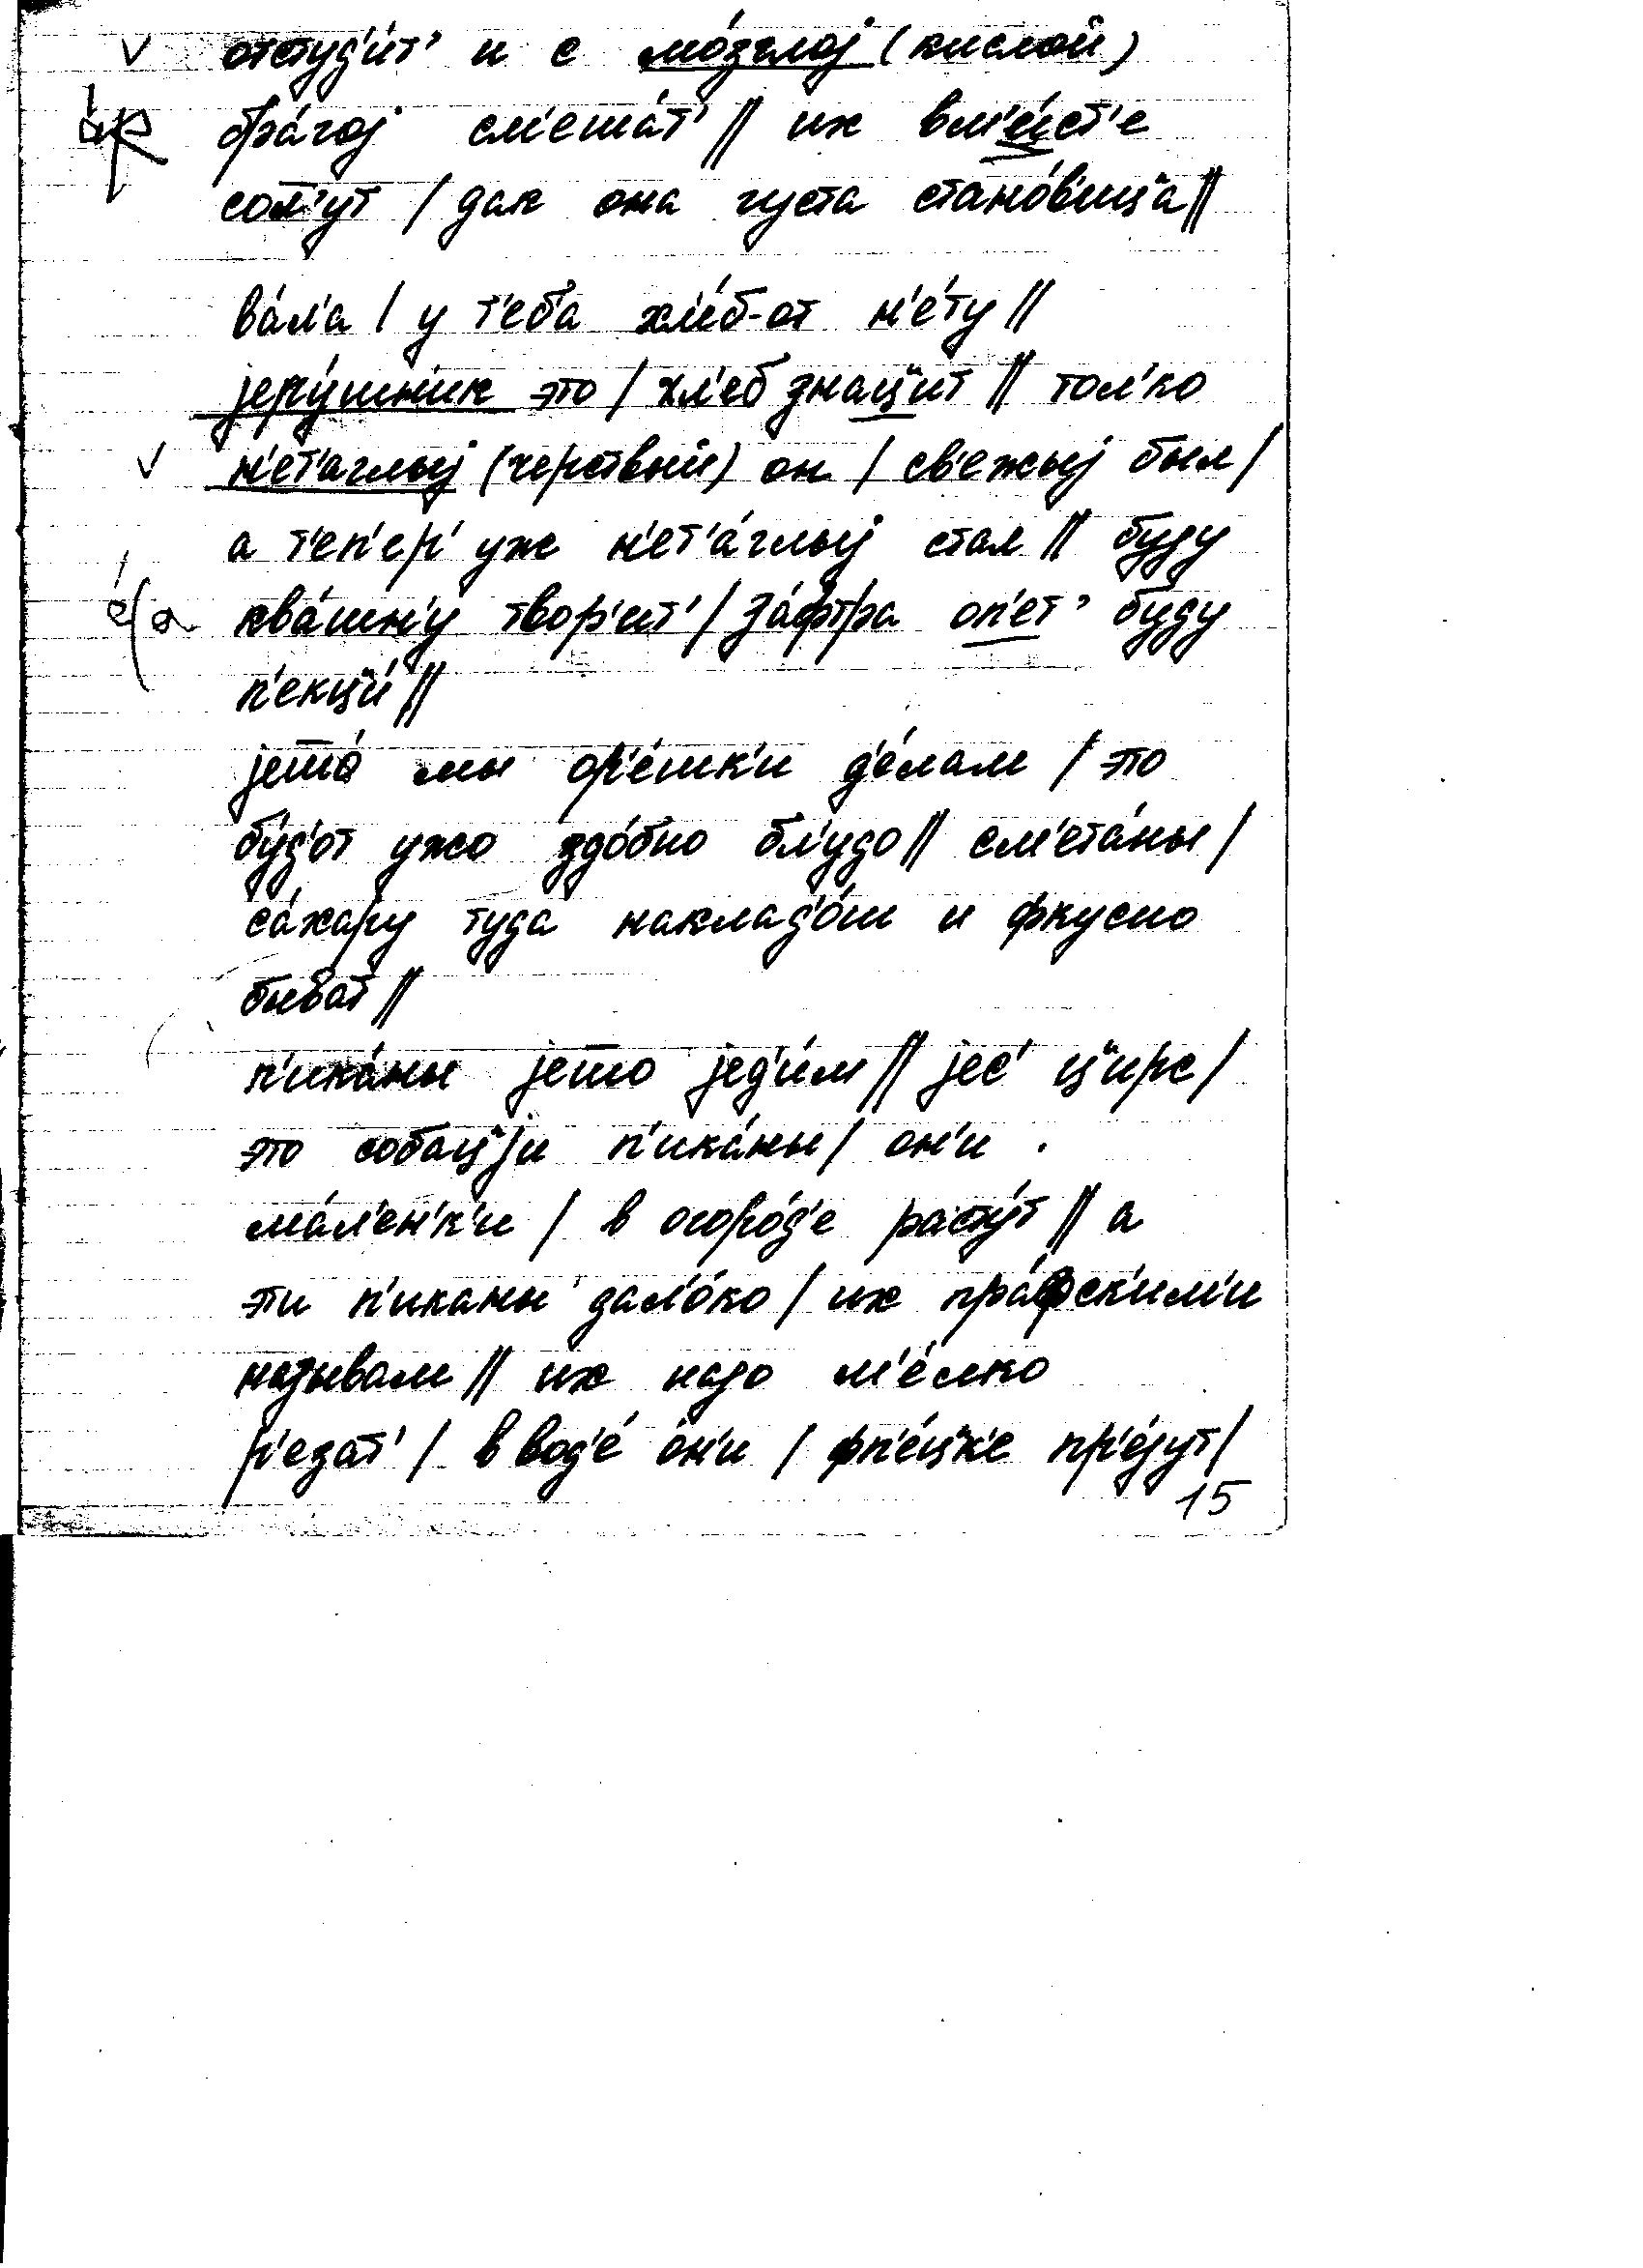 отстуд'и́т' и с мо́зглој (кислой)
бра́гој см'еша́т' // их вм'и́ст'е
сол'ут / дак она густа стано́в'иц"а //
ва́л'а / у т'еб'а хл'е́б-от н'е́ту //
јеру́шн'ик это / хл'еб знац"ит // тол'ко
н'ет'аглыј (черствый) он / св'ежыј был /
а т'еп'ер' уже н'ет'а́глыј стал // буду
ква́шн'у твор'ит' / за́фтра оп'ет' буду
п'екц"и́ //
јешо́ мы ор'е́шк'и д'е́лам / это
бу́д'от ужо здо́бно бл'удо // см'ета́ны /
са́хару туда наклад'о́ш и фкусно
быват //
п'ика́ны јешо јед'и́м // јес' ц"ирс /
это собац"ји п'ика́ны / он'и
ма́л'ен'к'и / в огоро́д'е расту́т // а
эти п'иканы дал'о́ко / их пра́фск'им'и
называм // их надо м'е́лко
р'езат' / в вод'е́ о́н'и / фп'е́цк'е пр'е́јут /
15